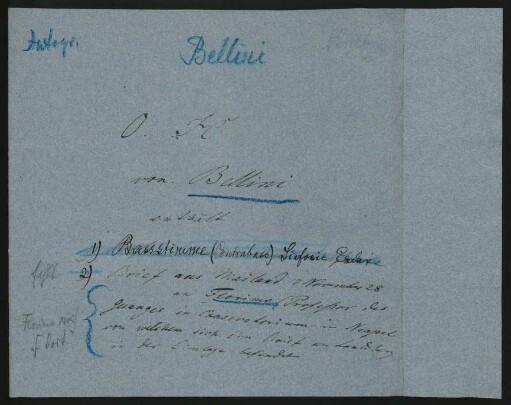 Autogr.
Bellini
O. H.
von Bellini
enthält
1) Bassstimme (Contrabass) Sinfonie
fehlt 2) Brief aus Mailand 1 November 28
an Florimo, Professor des
Gesanges im Conservatorium in Neapel
von welchem sich ein Brief an
in der Einlage befindet
Florimo